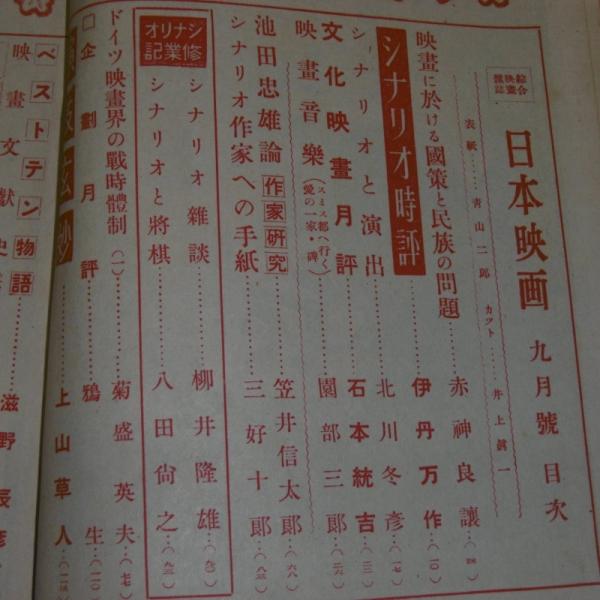 綜合映畫雜誌
日本映画 九月號 目次
表紙……青山二郎 カット……井上眞一
映畫に於ける國策と民族の問題……赤神良讓…(四)
シナリオ時評……伊丹万作…(一〇)
シナリオと演出……北川冬彥…(一七)
文化映畫月評……石本統吉…(三二)
映畫音樂(スミス都へ行く 愛の一家・碑)……園部三郎…(二六)
池田忠雄論 作家硏究……笠井信太郎…(六八)
シナリオ作家への手紙……三好十郎…(八三)
シナリオ修業記
シナリオ雜談……柳井隆雄…(九〇)
シナリオと將棋……八田尙之…(九三)
ドイツ映畫界の戰時體制(一)……菊盛英夫…(七七)
企劃月評……鴉生…(一一〇)
上山草人
ベストテン物語
映畫文獻史
滋野辰彥